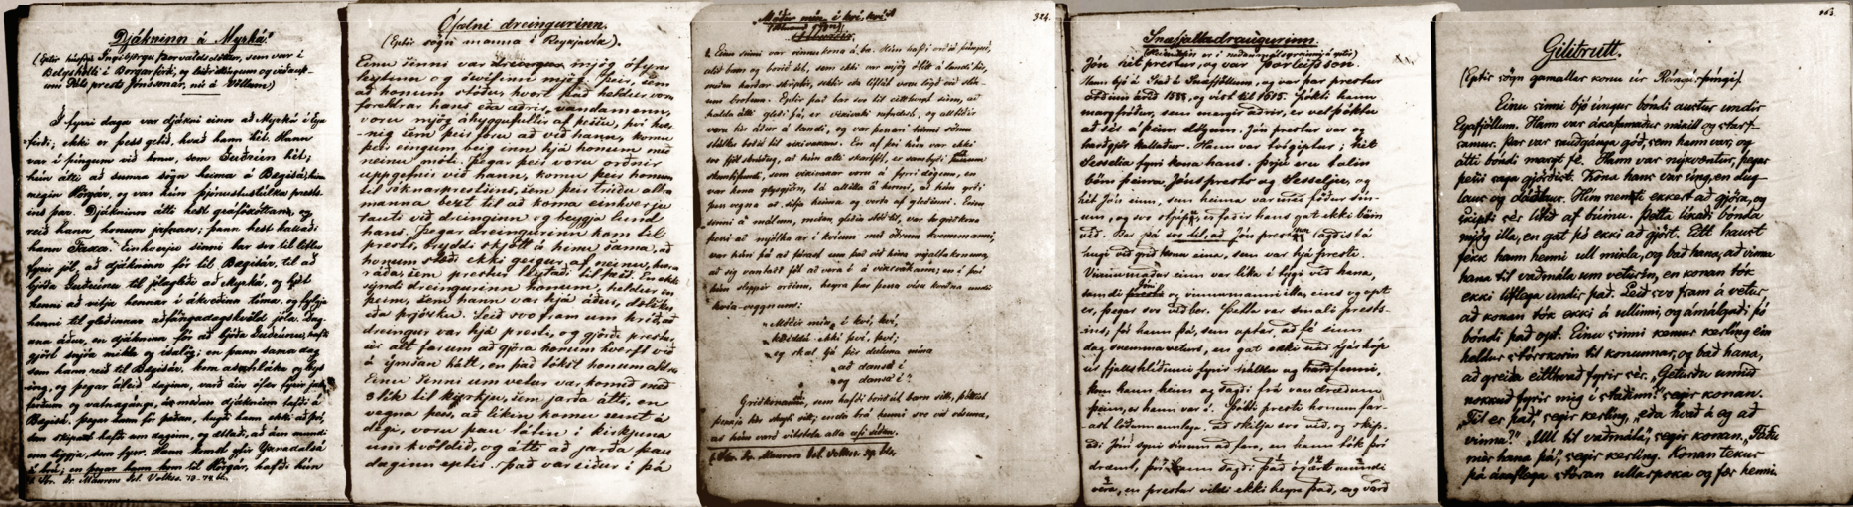 Djákninn á Myrká.
(Eptir húsfrú Ingibjörgu Þorvaldsdóttur, sem var í
Belgsholti í Borgarfirði, og
uni Páls prests Jónssonar, nú á Völlum)
Í fyrri daga var djákni einn að Myrká í Eya-
firði; ekki er þess getið, hvað hann hét. Hann
var í þingum við konu, sem Guðrún hét;
hún átti að sumra sögn heima á Bægisá, hinu
megin Hörgár, og var hún þjónustustúlka prests-
ins þar. Djákninn átti hest gráföxóttan, og
reið hann honum jafnan; þann hest kallaði
hann Faxa. Einhverju sinni bar svo til litlu
fyrir jól að djákninn fór til Bægisár, til að
bjóða Guðrúnu til jólagleði að Myrká, og hét
henni að vitja hennar í ákveðinn tíma, og fylgja
henni til gleðinnar aðfángadagskvöld jóla. Dag-
ana áður, en djákninn fór að bjóða Guðrúnu, hafði
gjört snjóa mikla og ísalög; en þann sama dag
sem hann reið til Bægisár, kom asahláka og leys-
íng, og þegar áleið daginn, varð áin ófær fyrir jaka-
ferðum og vatnagángi, á meðan djákninn tafði á
Bægisá. Þegar hann fór þaðan, hugði hann ekki að því,
sem skipazt hafði um daginn, og ætlaði, að áin mundi
enn liggja, sem fyrr. Hann komst yfir Yxnadalsá
á brú; en þegar hann kom til Hörgár, hafði hún
Sbr. Dr. Maurers Isl. Volkss. 73-74 bls.
Ófælni dreingurinn.
(Eptir sögn manna í Reykjavík).
Einu sinni var dreingur mjög ófyrir-
leytinn og ósvífinn mjög. Þeir, sem
að honum stóðu, hvort það heldur voru
foreldrar hans eða aðrir vandamenn,
voru mjög áhyggjufullir af þessu, því hver-
nig sem þeir fóru að við hann, komu
þeir eingum beig inn hjá honum með
neinu móti. Þegar þeir voru orðnir
uppgefnir við hann, komu þeir honum
til sóknarprestsins, sem þeir trúðu allra
manna bezt til að koma einhverju
tauti við dreinginn og beygja lund
hans. Þegar dreingurinn kom til
prests, bryddi skjótt á hinu sama, að
honum stóð ekki geigur af neinu, hvað
ráða, sem prestur leytaði til þess. En ekki
sýndi dreingurinn honum, heldur en
þeim, sem hann var hjá áður, þrjóð
eða þrjózku. Leið svo fram um hríð, að
dreingur var hjá presti, og gjörði prestur
sér allt far um að gjöra honum hverft við
á ýmsan hátt, en það tókst honum aldrei.
Einu sinni um vetur var komið með
3 lík til kirkju, sem jarða átti, en
vegna þess, að líkin komu seint á
degi, voru þau látin í kirkjuna
um kvöldið, og átti að jarða þau
daginn eptir. Það var siður í þá
„Móðir mín í kví, kví"
324.
Einu sinni var vinnukona á bæ. Hún hafði orðið þúnguð,
alið barn og borið út, sem ekki var mjög títt á landi hér,
meðan harðar skriptir, sektir eða líflát voru lögð við slík-
um brotum. Eptir það bar svo til eitthvert sinn, að
halda átti gleði þá, er vikivaki nefndist, og alltíðir
voru hér áður á landi, og var þessari sömu
stúlku boðið til vikivakans. En af því hún var ekki
svo fjölskrúðug, að hún ætti skartföt, er sambyði slíkum
mannfundi, sem vikivakar voru á fyrri dögum, en
var kona glysgjörn, þá allilla á henni, að hún yrði
þess vegna að sitja heima og verða af gleðinni. Einu
sinni á málum, meðan gleðin stóð til, var griðkona
þessi að mjólka ær í kvíum með öðrum kvennmanni,
var hún þá að fárast um það við hina mjaltakonuna,
að sig vantaði föt að vera í á vikivakanum; en í því
hún sleppir orðinu, heyra þær þessa vísu kveðna undir
kvía-veggnum:
„Móðir mín í kví, kví,
kvíddu ekki því, því;
eg skal ljá þér duluna mína
að dansa í
og dansa í"
Griðkonan, sem hafði borið út barn sitt, þóttist
þekkja hér skeyti sitt; enda brá henni svo við vísuna,
að hún varð vitstola alla æfi síðan.
Sbr. Dr. Maurers Isl. Volkss. 59. bls.
Snæfjalladraugurinn.
Jón hét prestur, og var Þorleifsson.
Hann bjó á Stað á Snæfjöllum, og var þar prestur
orðinn árið 1588, og víst til 1615. Þókti hann
margfróður, sem margir aðrir, er vel þóktu
að sér á þeim dögum. Jón prestur var og
harðgjör kallaður. Hann var tvígiptur; hét
Sesselia fyrri kona hans. Þrjú eru talin
börn þeirra Jóns prests og Sesselju, og
hét Jón einn, sem heima var með föður sín-
um, og svo stjúpu; faðir hans gat ekki börn
við. Bar þá svo til, að Jón prestsson lagði
hugi við griðkonu eina, sem var hjá presti.
Vinnumaður einn var líka í þygi við hana,
samdi Jóni og vinnumanni illa, eins og opt
er, þegar svo við ber. Þetta var smali prests-
ins; fór hann þá, sem optar að fé einn
dag snemma veturs, en gat ekki náð sjár hóp
úr fjallshlíðinni fyrir hálku og harðfenni,
kom hann heim og sagði frá vandræðum
þeim, er hann var í. Þótti presti honum far-
ast löðurmannlega að skilja svo við, og skip-
aði Jóni syni sínum að fara, en hann tók því
dræmt, því hann sagði það ógjört mundi
vera, en prestur vildi ekki heyra það, og varð
Gilitrutt.
(Eptir sögn gamallar konu úr Rángárþíngi)
Einu sinni bjó úngur bóndi austur undir
Eyafjöllum. Hann var ákafamaður mikill og starf-
samur. Þar var sauðgánga góð, sem hann var, og
átti bóndi margt fé. Hann var nýkvæntur, þegar
þetta saga gjörðist. Kona hans var úng, en dug-
laus og dáðlaus. Hún nennti ekkert að gjöra, og
skipti sér lítið af búinu. Þetta líkaði bónda
mjög illa, en gat þó ekki að gjört. Eitt haust
fékk hann henni ull mikla, og bað hana, að vinna
hana til vaðmála um veturinn, en konan tók
ekki líflega undir það. Leið svo fram á vetur
að konan tók ekki á ullinni, og ámálgaði þó
bóndi það opt. Einu sinni kemur kerling ein
heldur stórskorin til konunnar, og bað hana,
að greiða eitthvað fyrir sér. „Geturðu unnið
nokkuð fyrir mig í staðinn?" segir konan.
„Til er það," segir kerling, „eða hvað á eg að
vinna?" „Ull til vaðmála," segir konan. „Fáðu
mér hana þá," segir kerling. Konan tekur
þá ákaflega stóran ullarpoka og fær henni